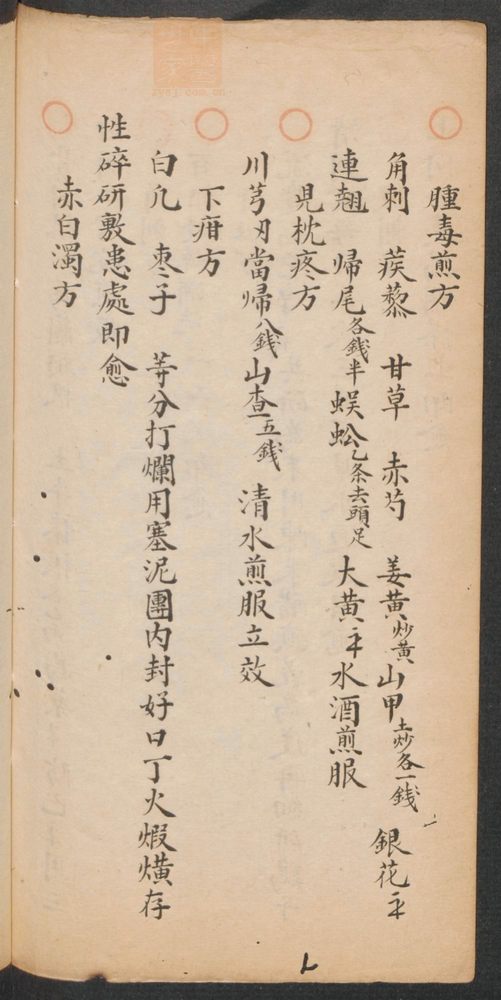 腫毒煎方
角刺 蒺藜 甘草 赤芍 姜黄炒黄山甲土炒各一錢 銀花
連翹 歸尾各錢半 蜈蚣乙条去頭足 大黄 水酒煎服
児枕疼方
川芎 當歸八錢山查五錢 清水煎服立效
下疳方
白凡 枣子 等分打爛用塞泥團内封好口丁火煅熿存
性碎研敷患處即愈
赤白濁方
zysj.com.cn